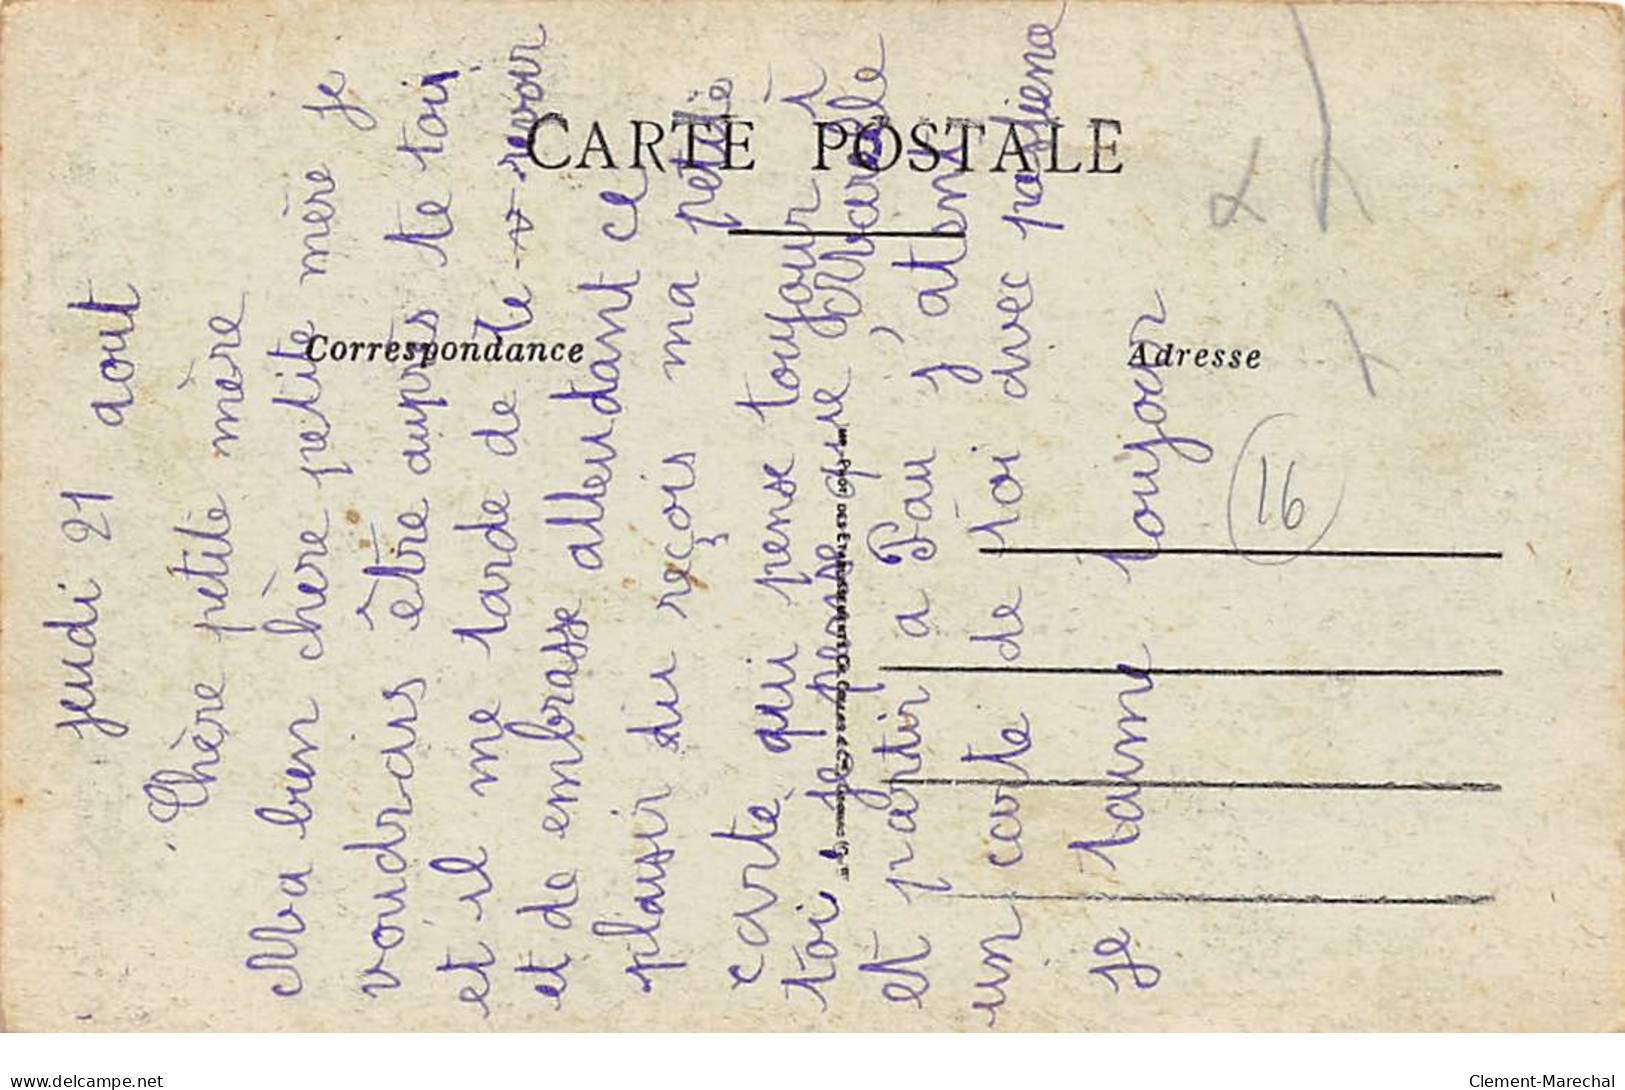 CARTE POSTALE
Correspondance
Adresse
jeudi 21 aout
Chère petite mère
Ma bien chère petite mère je
voudrais être auprs te toi
et il me tarde de te revoir
et de embrasse allendant ce
plaisir du reçois ma petite
carte qui pense toujour à
toi je pense que Marcelle
et partir a Pau j'atens
un carte de toi avec pasjience
je taime toujour
16
delcampe.net
Clement-Marechal